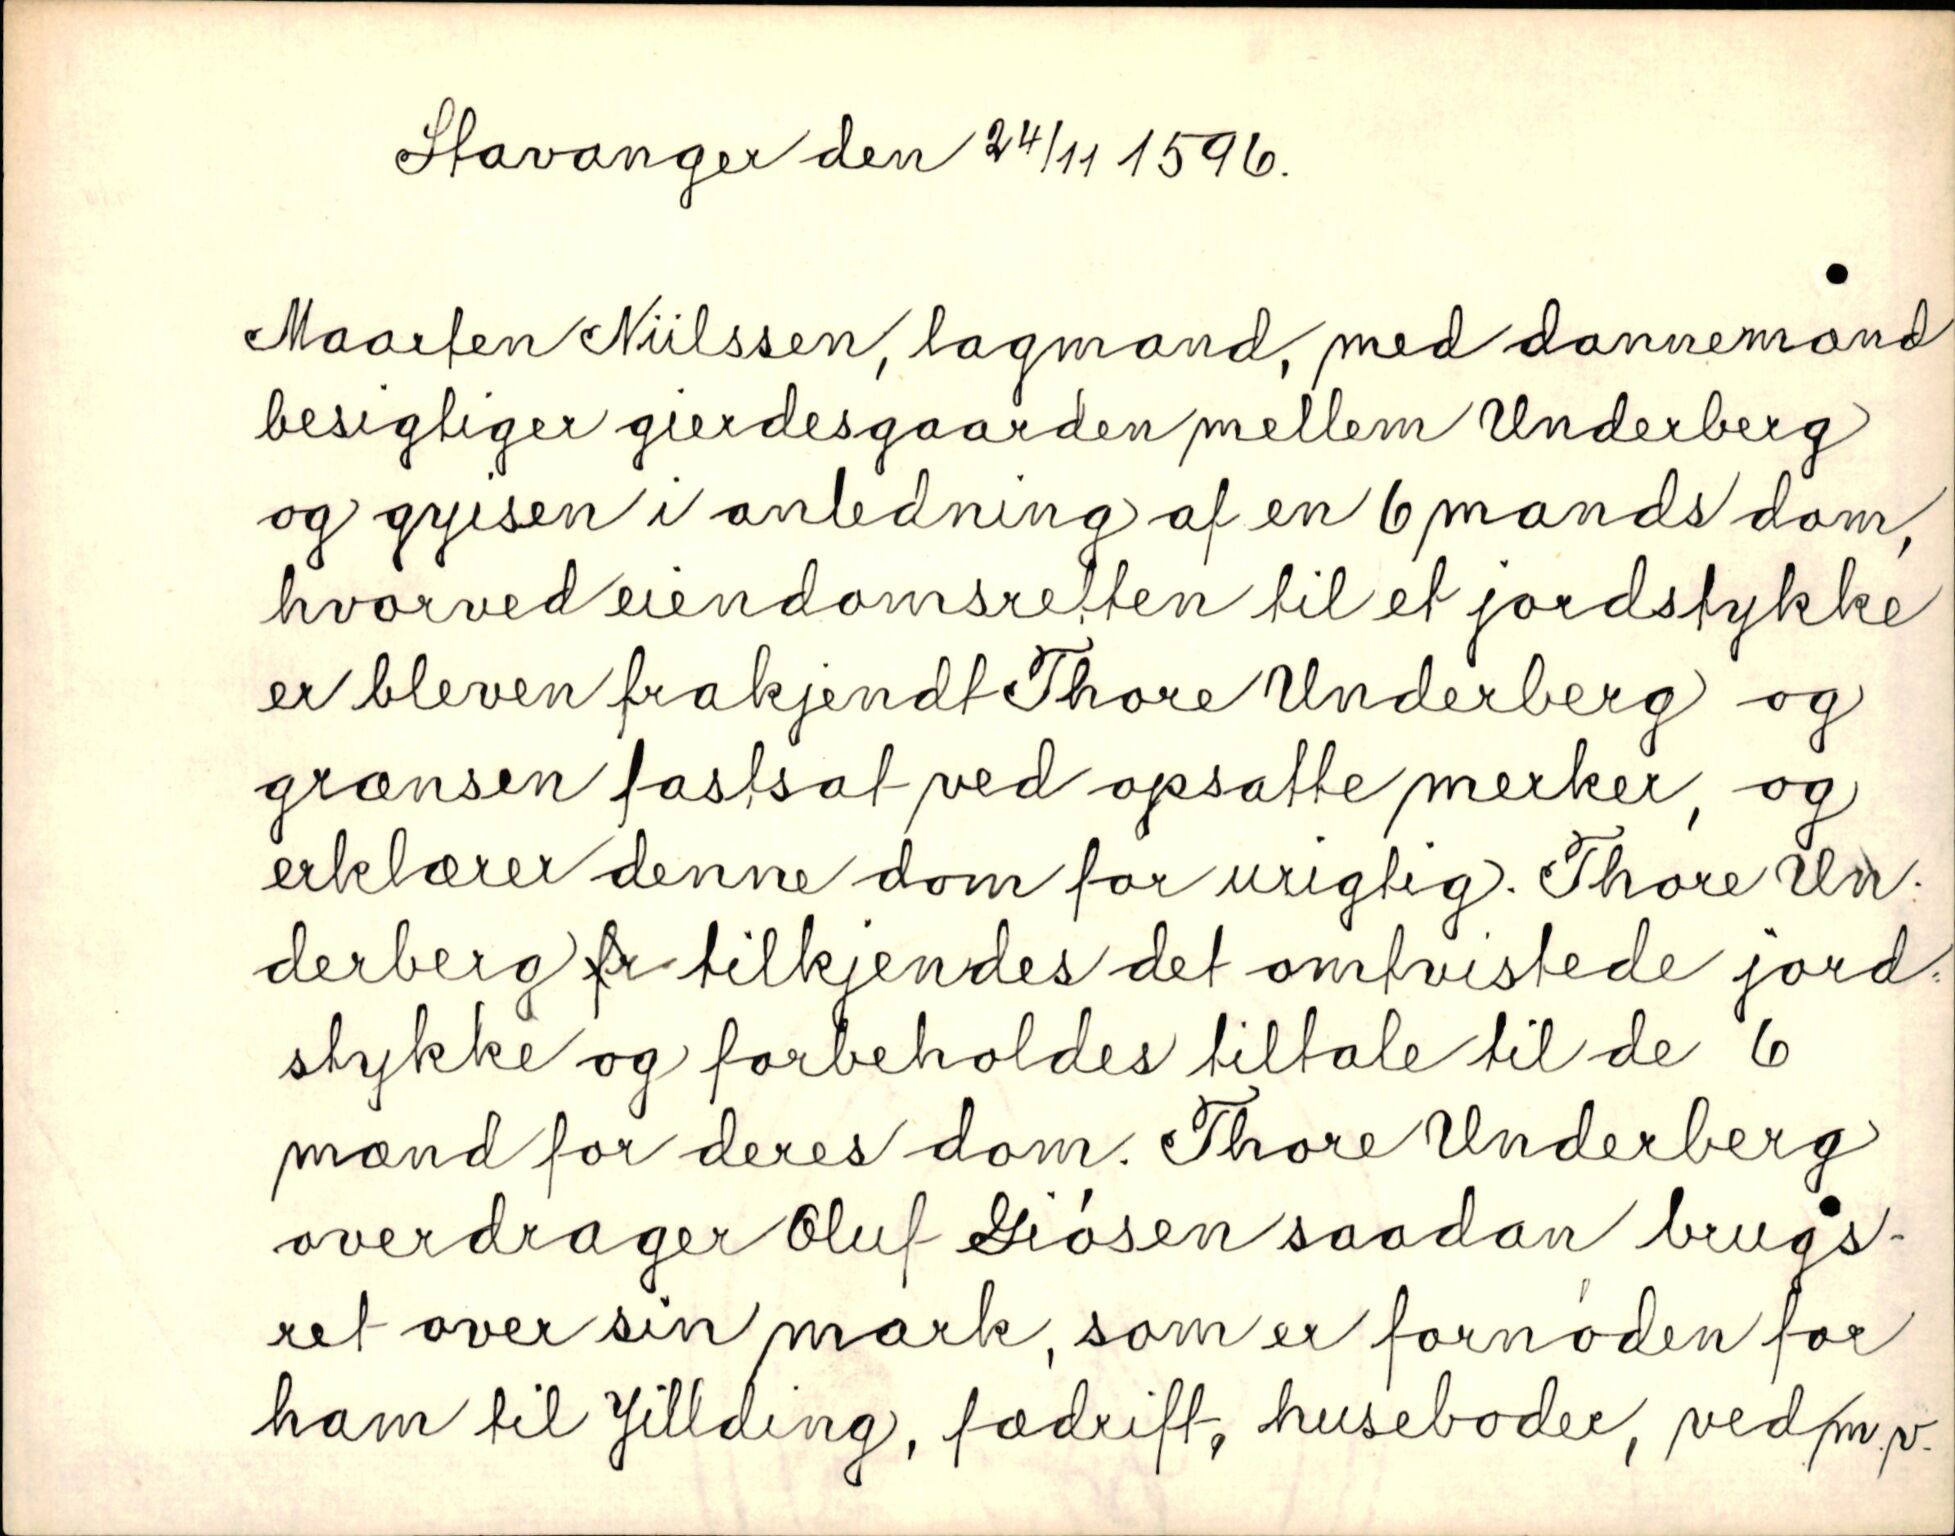 Stavanger den 24/11 1596.
Maarten Niilssen, lagmand, med dannemænd
besigtiger gierdesgaarden mellem Underberg
og gyisen i anledning af en 6 mands dom,
hvorved eiendomsretten til et jordstykke
er bleven frakjendt Thore Underberg og
grænsen fastsat ved opsatte merker, og
erklærer denne dom for urigtig. Thore Un-
derberg tilkjendes det omtvistede jord-
stykke og forbeholdes tiltale til de 6
mænd for deres dom. Thore Underberg
overdrager Oluf Giøsen saadan brugs-
ret over sin mark, som er fornøden for
ham til Yillding, fædrift, huseboder, ved m.v.